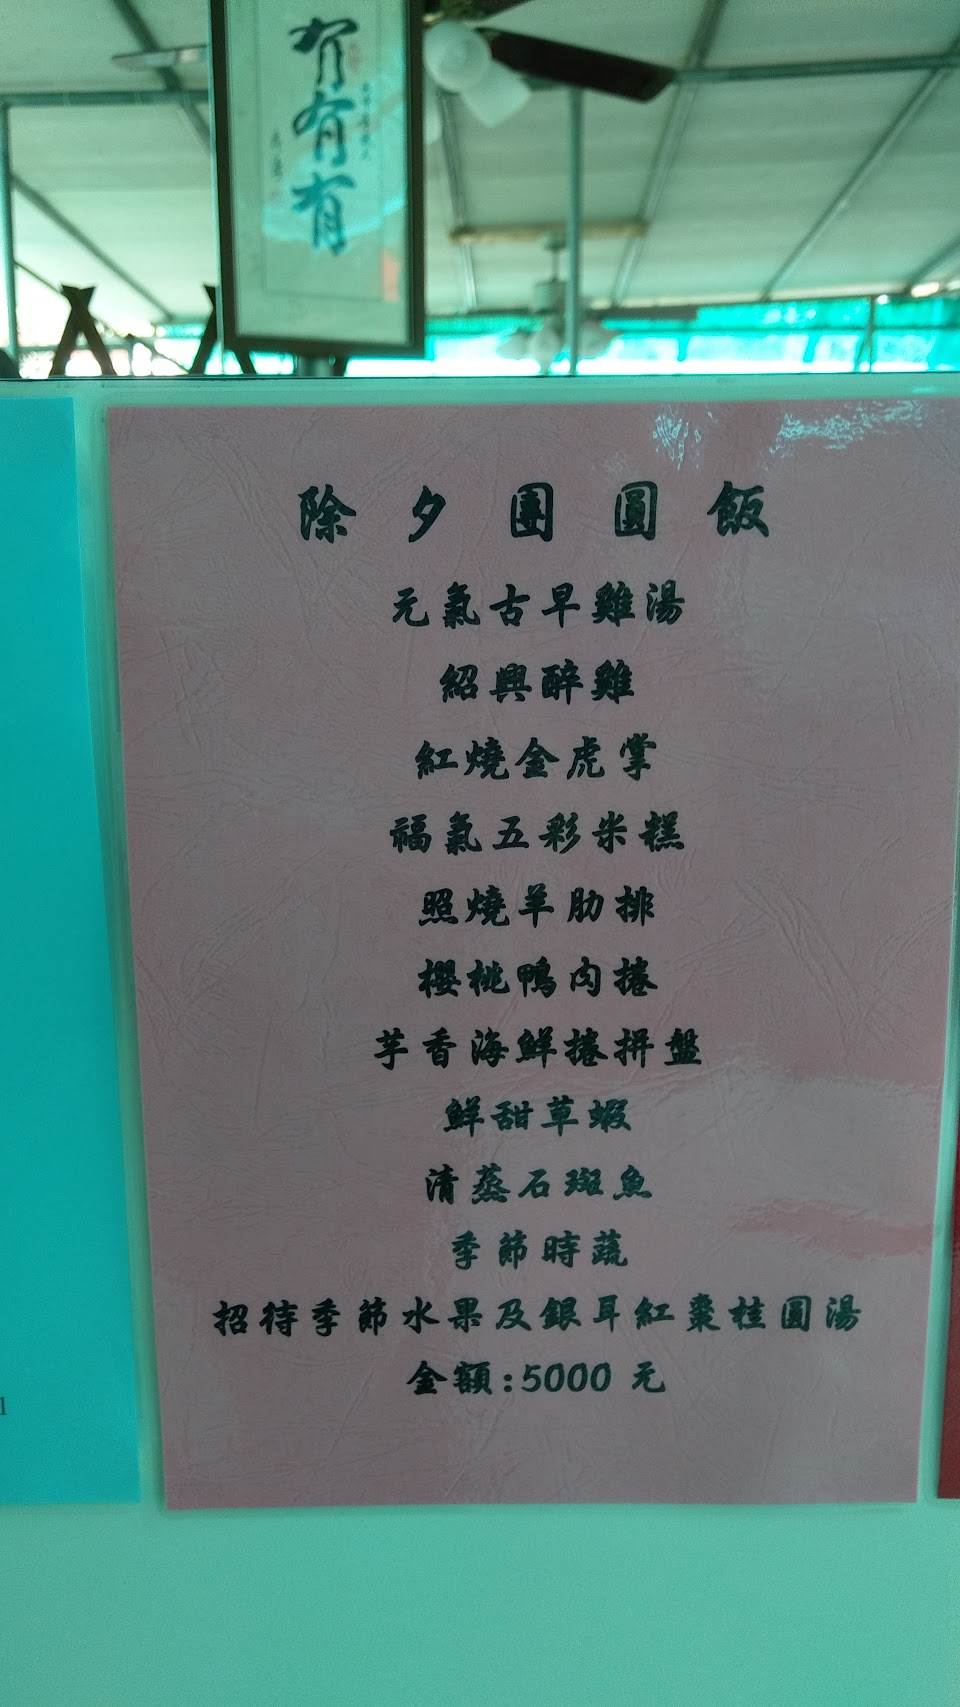 有有有
除夕團圓飯
元氣古早雞湯
紹興醉雞
紅燒金虎掌
福氣五彩米糕
照燒羊肋排
櫻桃鴨肉捲
芋香海鮮捲拼盤
鮮甜草蝦
清蒸石斑魚
季節時蔬
招待季節水果及銀耳紅棗桂圓湯
金額:5000 元
1